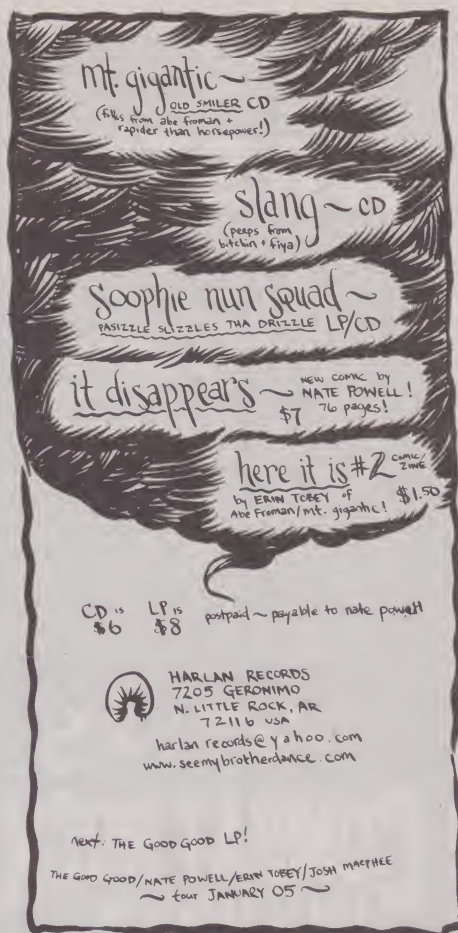 mt. gigantic ~
OLD SMILER CD
(folks from abe froman +
rapider than horsepower!)
slang ~ CD
(peeps from
bitchin + fiya)
Soophie nun Squad ~
PASIZZLE SLIZZLES THA DRIZZLE LP/CD
it disappears ~ NEW COMIC by
NATE POWELL!
$7 76 pages!
here it is #2 COMIC/
ZINE
by ERIN TOBEY of $1.50
Abe Froman/mt. gigantic!
CD is LP is
$6 $8 postpaid ~ payable to nate powell
HARLAN RECORDS
7205 GERONIMO
N. LITTLE ROCK, AR
72116 USA
harlan records@yahoo.com
www.seemybrotherdance.com
next: THE GOOD GOOD LP!
THE GOOD GOOD/NATE POWELL/ERIN TOBEY/JOSH MACPHEE
~ tour JANUARY 05 ~